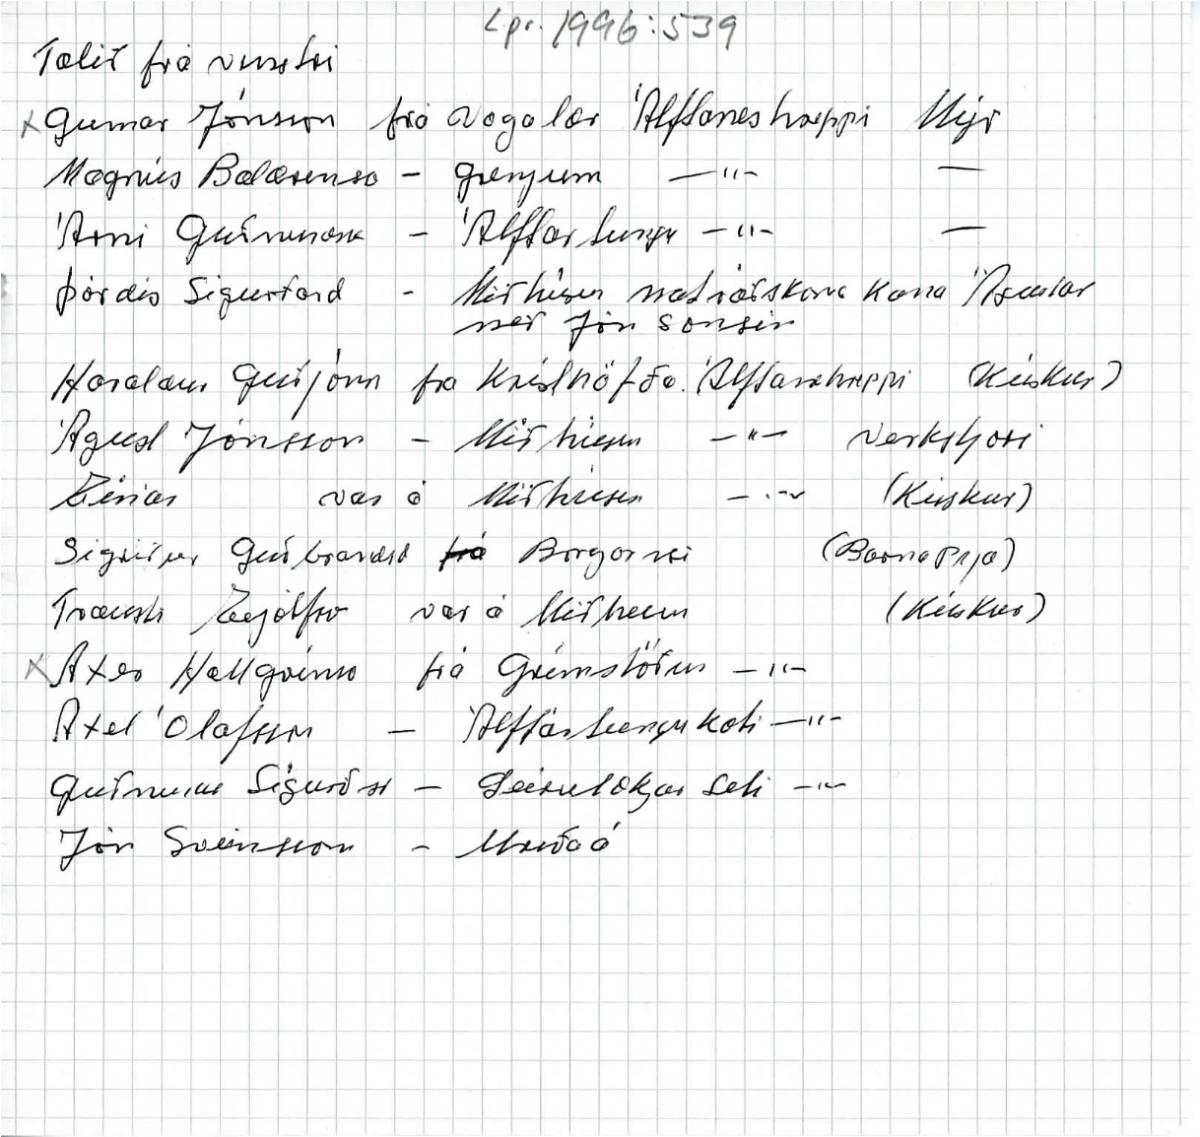 Lpr. 1996:539
Talið frá vinstri
x Gunnar Jónsson frá Vogalæk Álftaneshreppi Mýr
Magnús Balarenso - Grenjum —"— —
Árni Guðmunds - Álftártungu —"— —
Þórdís Sigurðard - Miðhúsum matráðskona kona Ágústar
með Jón sonsin
Haraldur Guðjóns frá Krísthöfða. Álftaneshreppi (Kúskur)
Ágúst Jónsson - Miðhúsum —"— Verkstjóri
var á Miðhúsum —"— (Kúskur)
Sigríður Guðbrandsd frá Borgarnesi (Barnapija)
Trausti Eyjólfss var á Miðhúsum (Kúskur)
x Axel Hallgríms frá Grímstöðum —"—
Axel Ólafsson — Álftártungukoti —"—
Guðmundur Sigurðss — Leirulækjar Seli —"—
Jón Sveinsson -